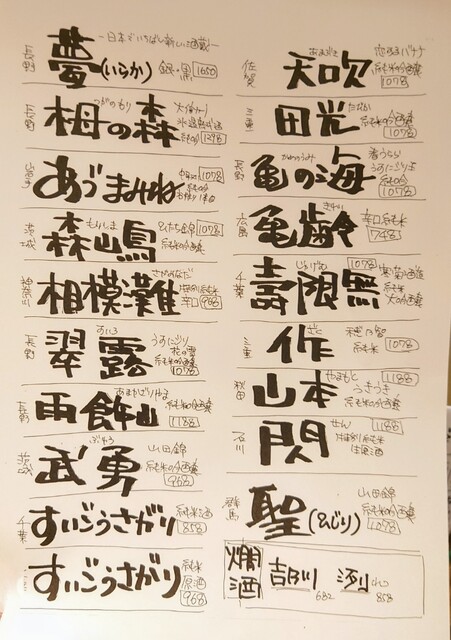 〜日本でいちばん新しい酒蔵〜
長野
夢(いらか)
銀・黒 1650
長野
つがのもり
栂の森
純吟 1298
あづまみね
1078
純吟
茨城
もりしま
森嶋
ひたち錦 1078
純米吟醸
神奈川
さがみなだ
相模灘
辛口 968
長野
すいろ
翠露
うすにごり
花の雪
純米吟醸
1078
長野
あまかざりやま
雨飾山
純米吟醸
1188
茨城
ぶゆう
武勇
山田錦
純米吟醸
968
千葉
すいごうさがり
純米酒
858
すいごうさがり
純米
原酒
968
佐賀
あまぶき
天吹
恋するバナナ
純米吟醸
1078
三重
たびか
田光
純米吟醸
1078
長野
かめのうみ
亀の海
春うらら
うすにごり生
純吟
1078
広島
きれい
亀齢
辛口純米
748
千葉
じゅげむ
壽限無
1078
純米
三重
ざく
作
穂乃智
純米
1078
秋田
やまもと
山本
1188
うきうき
純米吟醸
石川
せん
閃
1188
純米
生原酒
群馬
聖(ひじり)
山田錦
純米吟醸
1078
燗酒
吉乃川
682
858